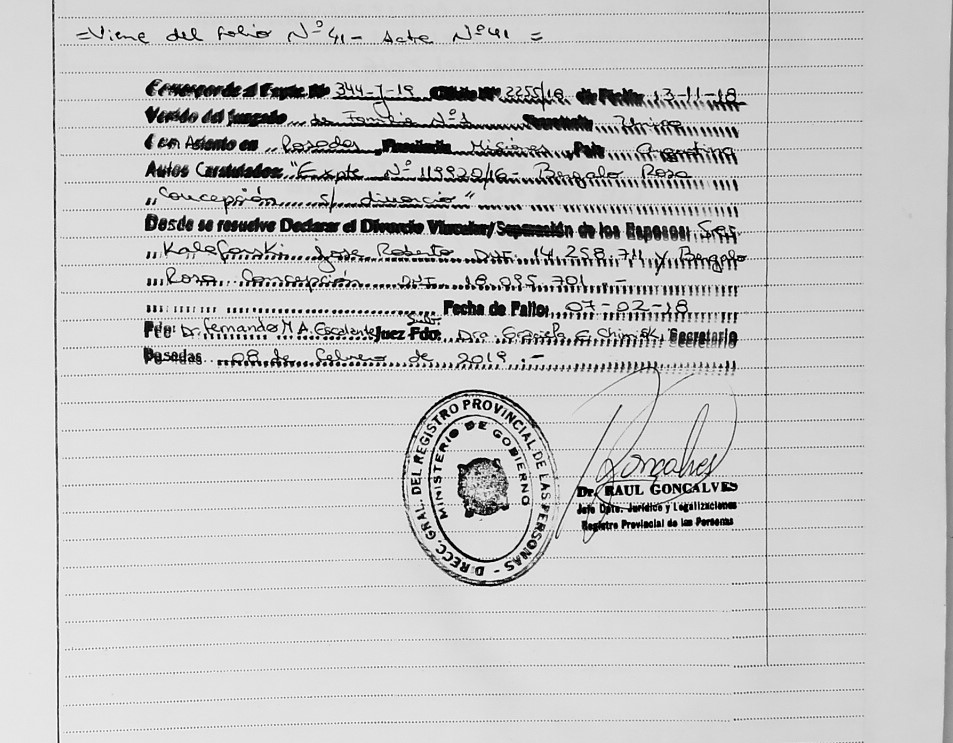 =Viene del folio Nº 41- Acta Nº 41 =
Corresponde al Expte Nº 344-J-19 Oficio Nº 2255/18 de Fecha 13-11-18
Venido del Juzgado de Familia Nº1 Secretaría Única
Con Asiento en Posadas, Provincia Misiones, País Argentina
Autos Caratulados: "Expte Nº 119920/16- Bergalo Rosa
Concepción s/ divorcio"
Donde se resuelve Declarar el Divorcio Vincular/Separación de los Esposos: Sres
Jose Roberto DNI. 14.258.711 y Bergalo
Rosa Concepción DNI. 18.095.701.-
Fecha de Fallo: 07-02-18
Fdo: Dr. Fernando M.A. Escalante Juez Fdo: Dra. Graciela E. Secretario
Posadas 08 de febrero de 2019.-
DIRECC. GRAL. DEL REGISTRO PROVINCIAL DE LAS PERSONAS -
MINISTERIO DE GOBIERNO
Dr. RAUL GONCALVES
Jefe Dpto. Jurídico y Legalizaciones
Registro Provincial de las Personas